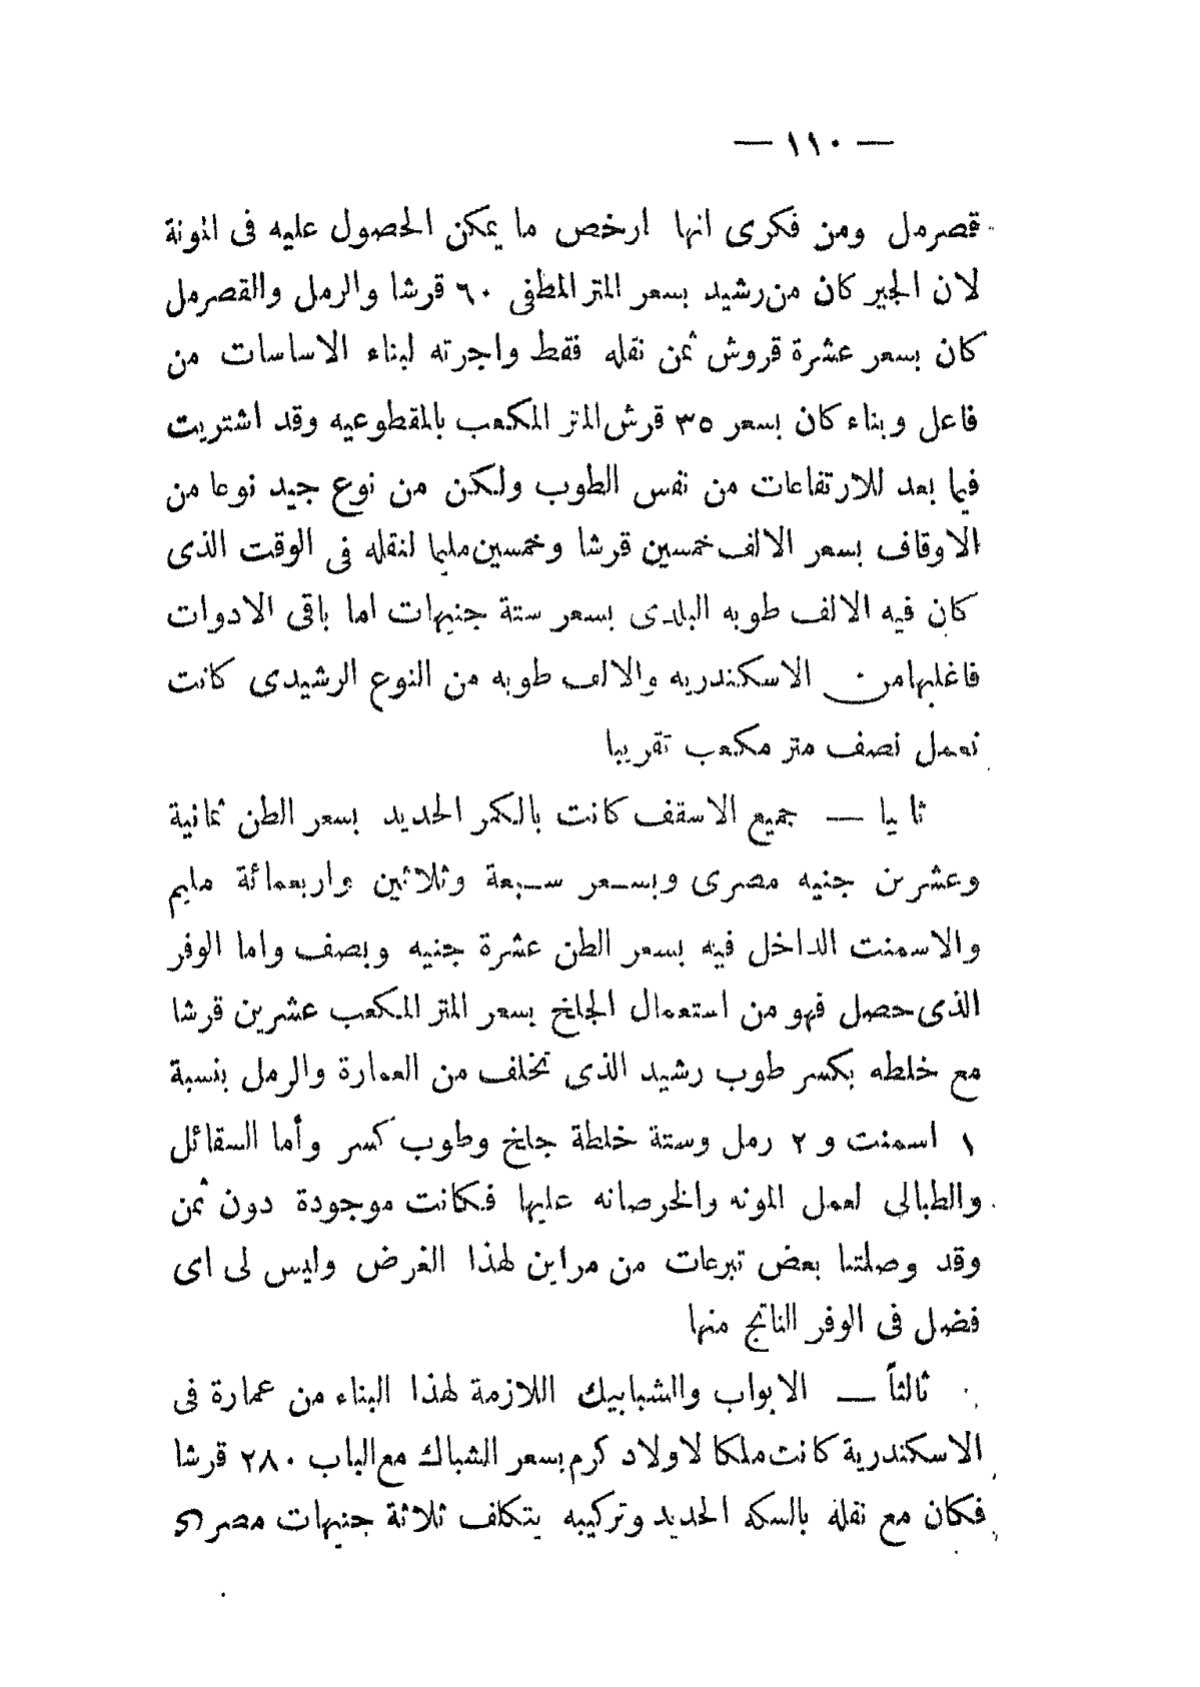 — ١١٠ —
قصرمل ومن فكرى انها ارخص ما يمكن الحصول عليه فى المونة
لان الجير كان من رشيد بسعر المتر المطفى ٦٠ قرشا والرمل والقصرمل
كان بسعر عشرة قروش ثمن نقله فقط واجرته لبناء الاساسات من
فاعل وبناء كان بسعر ٣٥ قرش المتر المكعب بالمقطوعيه وقد اشتريت
فيما بعد للارتفاعات من نفس الطوب ولكن من نوع جيد نوعا من
الاوقاف بسعر الالف خمسين قرشا وخمسين مليما لنقله فى الوقت الذى
كان فيه الالف طوبه البلدى بسعر ستة جنيهات اما باقى الادوات
فاغلبها من الاسكندريه والالف طوبه من النوع الرشيدى كانت
تعمل نصف متر مكعب تقريبا
ثانيا — جميع الاسقف كانت بالكمر الحديد بسعر الطن ثمانية
وعشرين جنيه مصرى وبسعر سبعة وثلاثين واربعمائة مليم
والاسمنت الداخل فيه بسعر الطن عشرة جنيه وبصف واما الوفر
الذى حصل فهو من استعمال الجلخ بسعر المتر المكعب عشرين قرشا
مع خلطه بكسر طوب رشيد الذى تخلف من العمارة والرمل بنسبة
١ اسمنت و ٢ رمل وستة خلطة جلخ وطوب كسر وأما السقائل
والطبالى لعمل المونه والخرصانه عليها فكانت موجودة دون ثمن
وقد وصلتنا بعض تبرعات من مراين لهذا الغرض وليس لى اى
فضل فى الوفر الناتج منها
ثالثاً — الابواب والشبابيك اللازمة لهذا البناء من عمارة فى
الاسكندرية كانت ملكا لاولاد كرم بسعر الشباك مع الباب ٢٨٠ قرشا
فكان مع نقله بالسكه الحديد وتركيبه يتكلف ثلاثة جنيهات مصرى